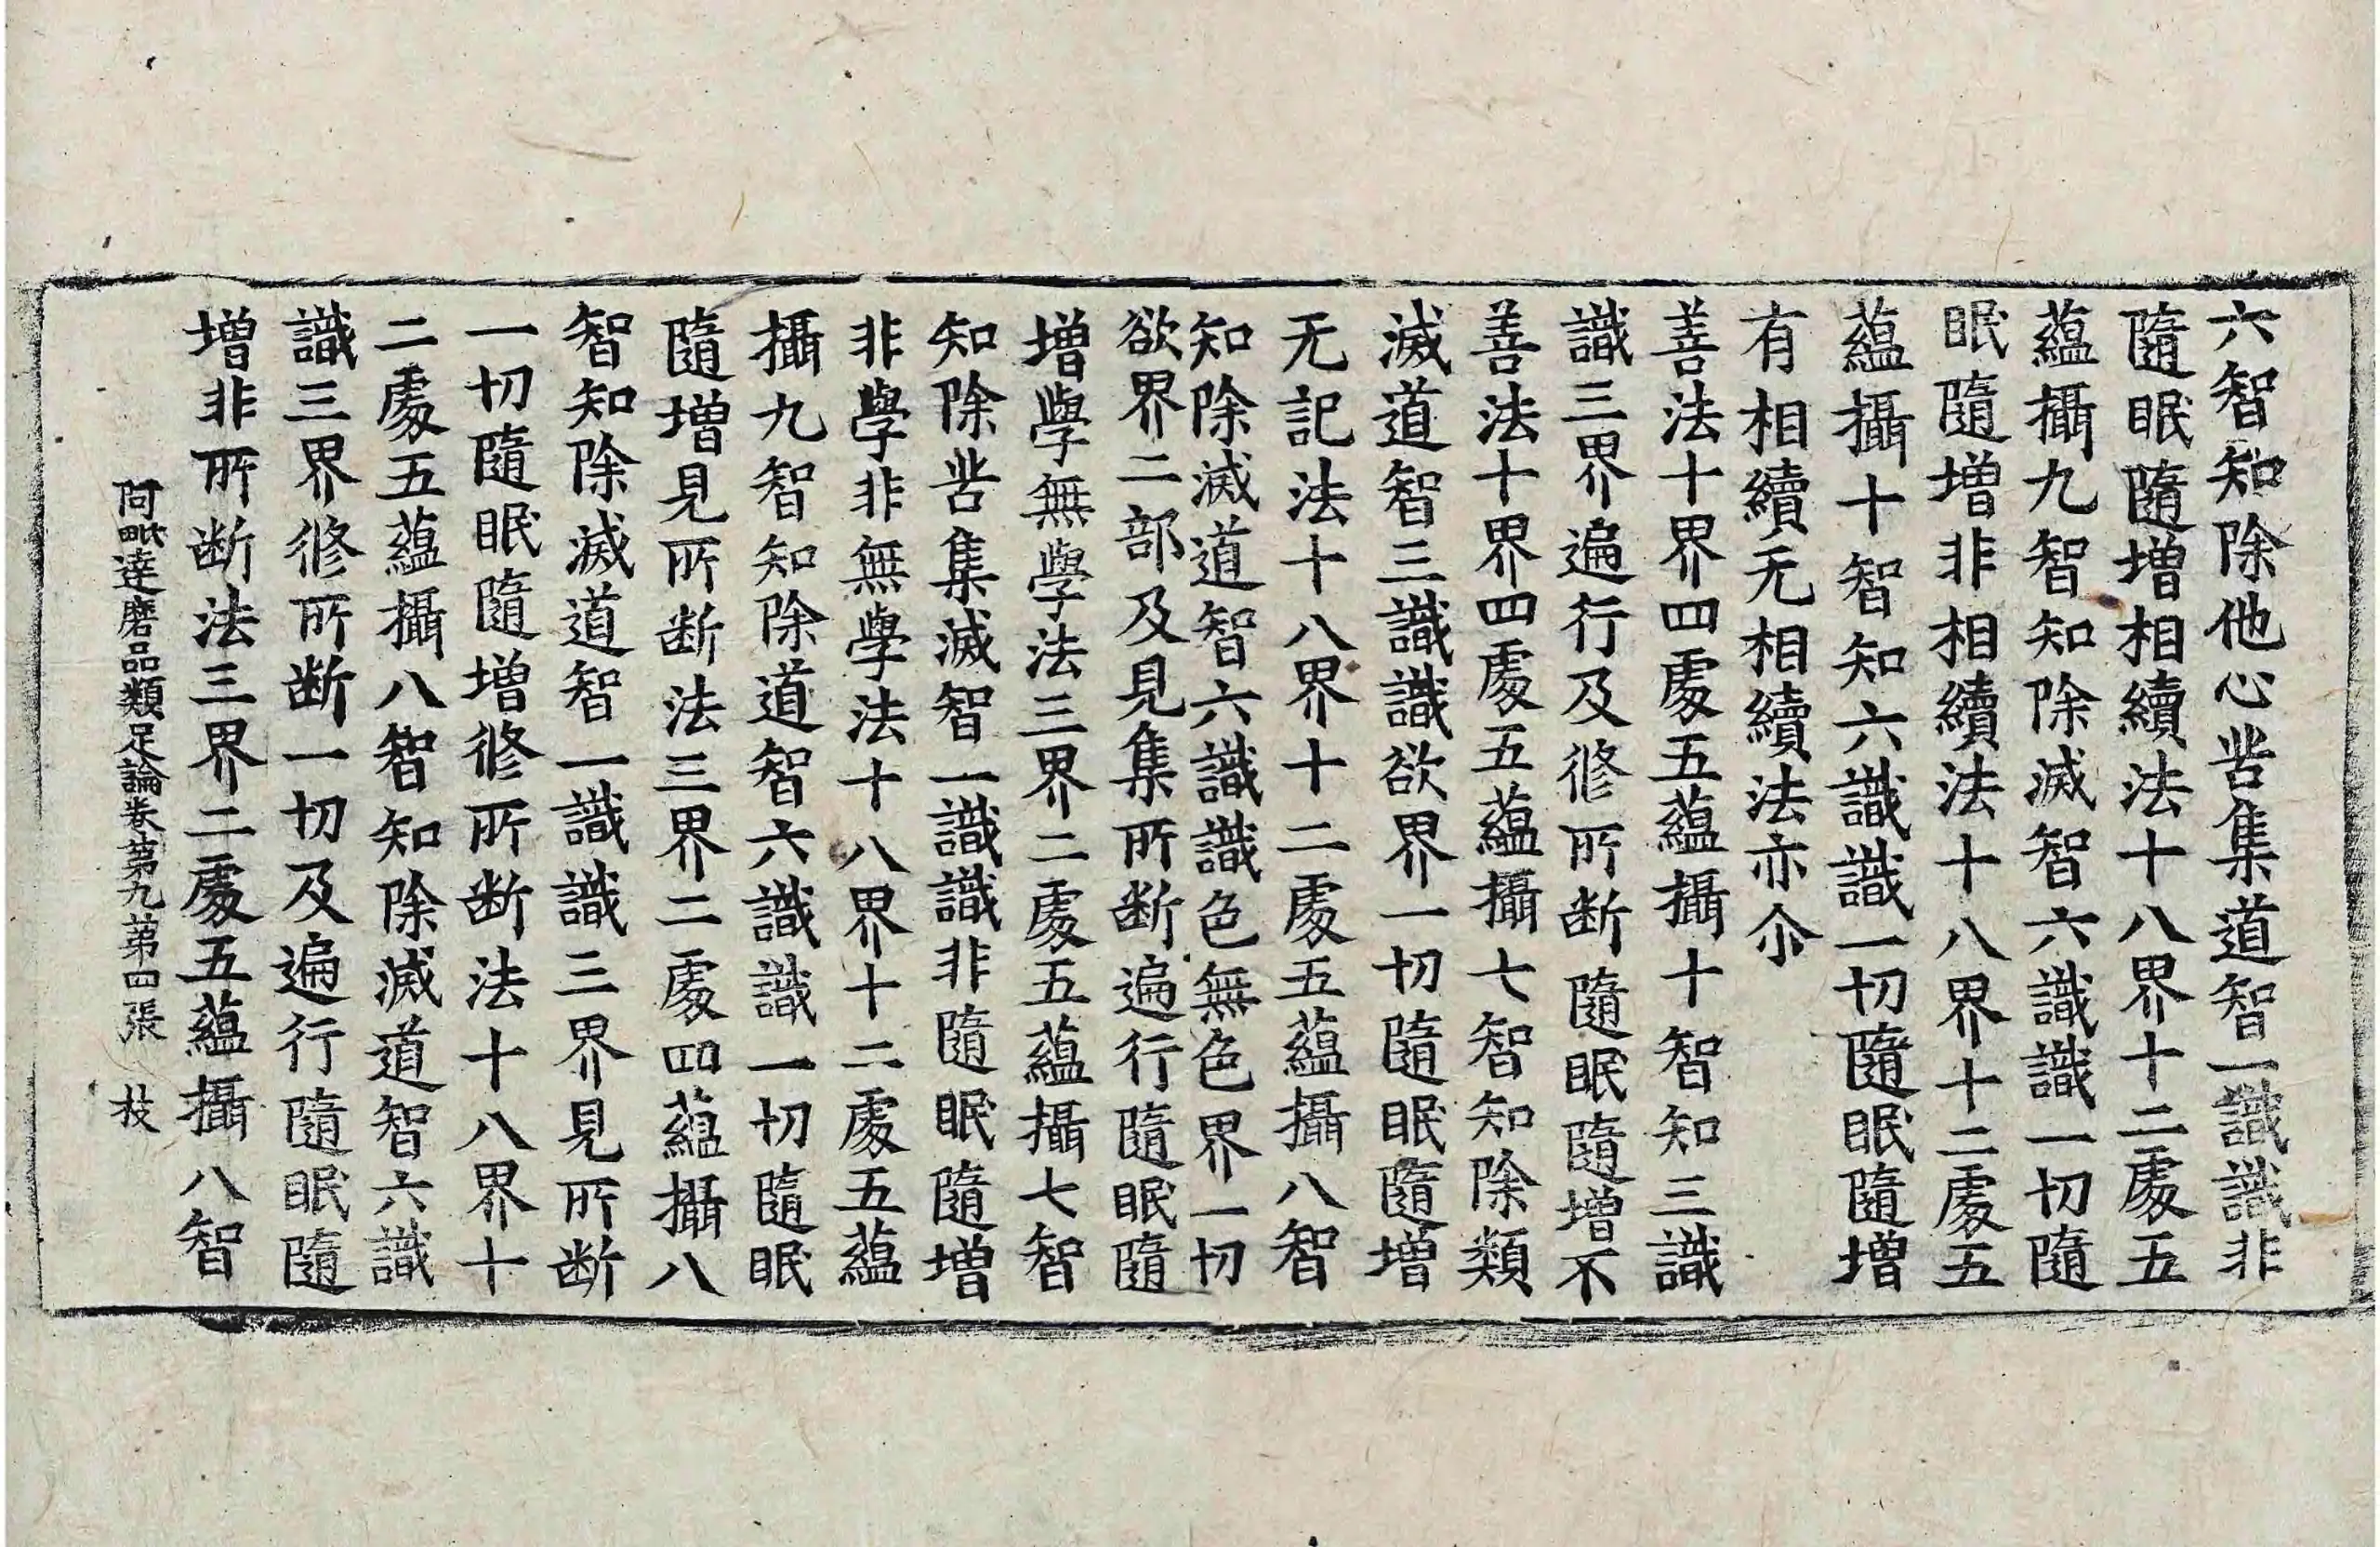 六智知除他心苦集道智一識識非
隨眠隨增相續法十八界十二處五
蘊攝九智知除滅智六識識一切隨
眠隨增非相續法十八界十二處五
蘊攝十智知六識識一切隨眠隨增
有相續无相續法亦尒
善法十界四處五蘊攝十智知三識
識三界遍行及修所断隨眠隨增不
善法十界四處五蘊攝七智知除類
滅道智三識識欲界一切隨眠隨增
无記法十八界十二處五蘊攝八智
知除滅道智六識識色無色界一切
欲界二部及見集所断遍行隨眠隨
增學無學法三界二處五蘊攝七智
知除苦集滅智一識識非隨眠隨增
非學非無學法十八界十二處五蘊
攝九智知除道智六識識一切隨眠
隨增見所断法三界二處四蘊攝八
智知除滅道智一識識三界見所断
一切隨眠隨增修所断法十八界十
二處五蘊攝八智知除滅道智六識
識三界修所断一切及遍行隨眠隨
增非所断法三界二處五蘊攝八智
阿毗達磨品類足論卷第九第四張 技